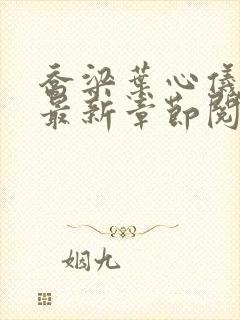 乔梁叶心仪
最新章节阅
姻九